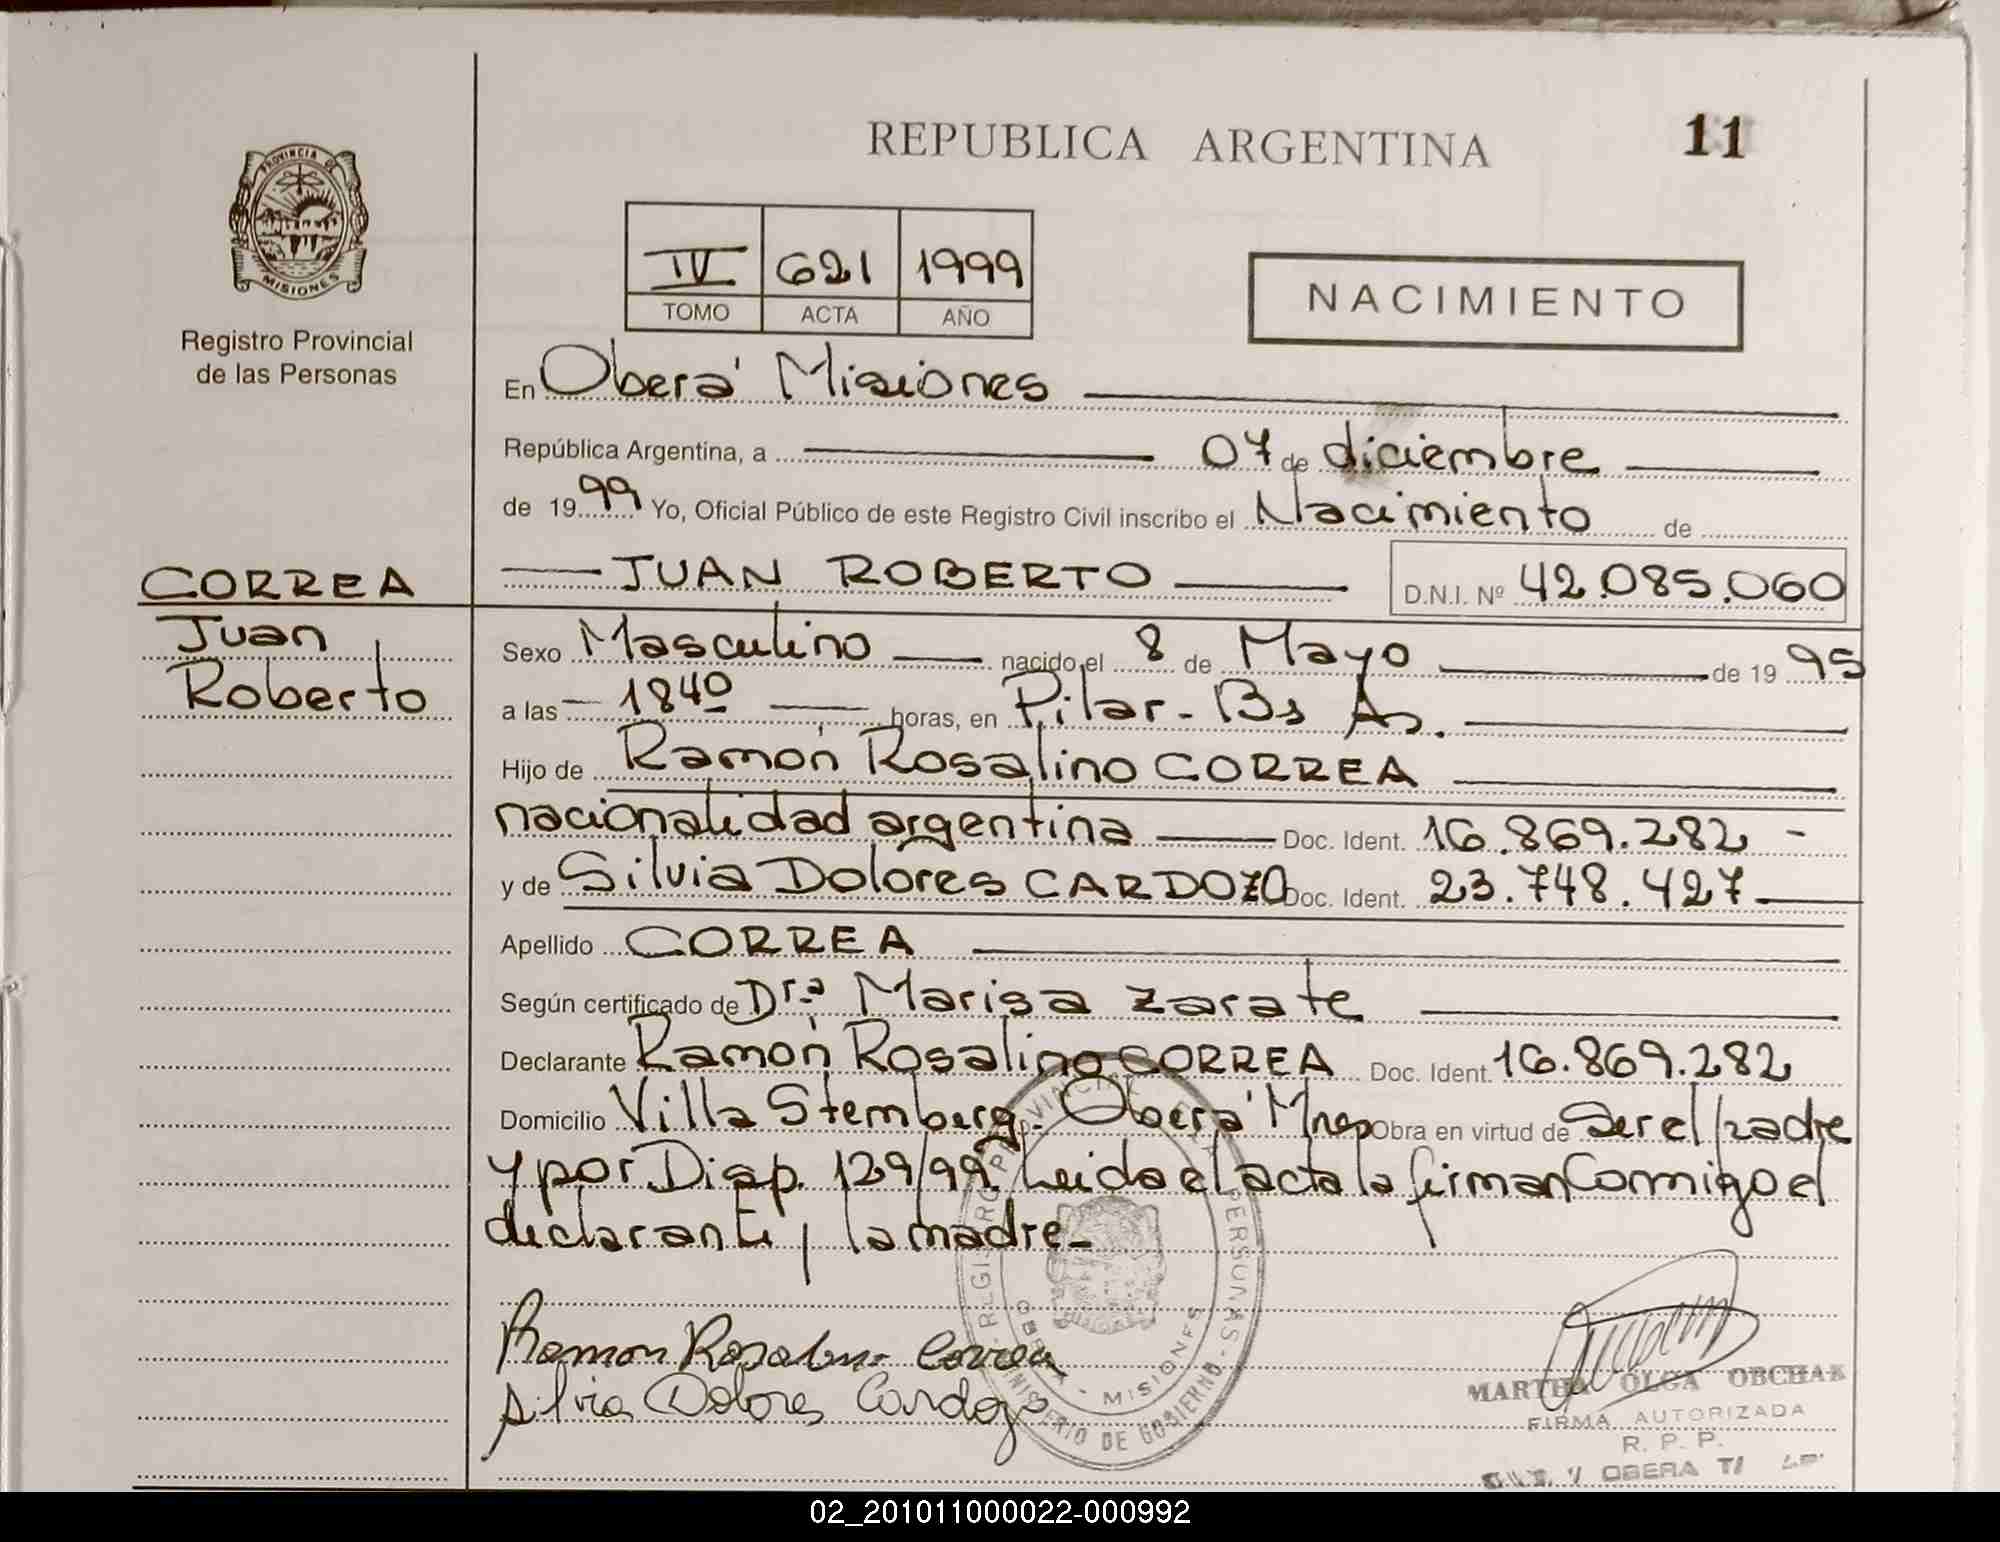 REPUBLICA ARGENTINA
11
PROVINCIA DE
MISIONES
Registro Provincial
de las Personas
IV 621 1999
TOMO ACTA AÑO
NACIMIENTO
En Oberá Misiones
República Argentina, a 07 de diciembre
de 1999 Yo, Oficial Público de este Registro Civil inscribo el Nacimiento de
JUAN ROBERTO D.N.I. Nº 42.085.060
CORREA
Juan
Roberto
Sexo Masculino nacido el 8 de Mayo de 1995
a las 1840 horas, en Pilar - Bs As.
Hijo de Ramón Rosalino CORREA
nacionalidad argentina Doc. Ident. 16.869.282 -
y de Silvia Dolores CARDOZO Doc. Ident. 23.748.427
Apellido CORREA
Según certificado de Dr.a Marisa Zarate
Declarante Ramón Rosalino CORREA Doc. Ident. 16.869.282
Domicilio Villa Stemberg. Oberá Mnes Obra en virtud de Ser el padre
y por Disp. 129/99. Leida el acta la firman Conmigo el
declarante y la madre -
Ramon Rosalino Correa
Silvia Dolores Cardozo
REGISTRO PROVINCIAL DE LAS PERSONAS - MINISTERIO DE GOBIERNO
OBERA - MISIONES
MARTHA OLGA OBCHAK
FIRMA AUTORIZADA
R. P. P.
OBERA
02_201011000022-000992